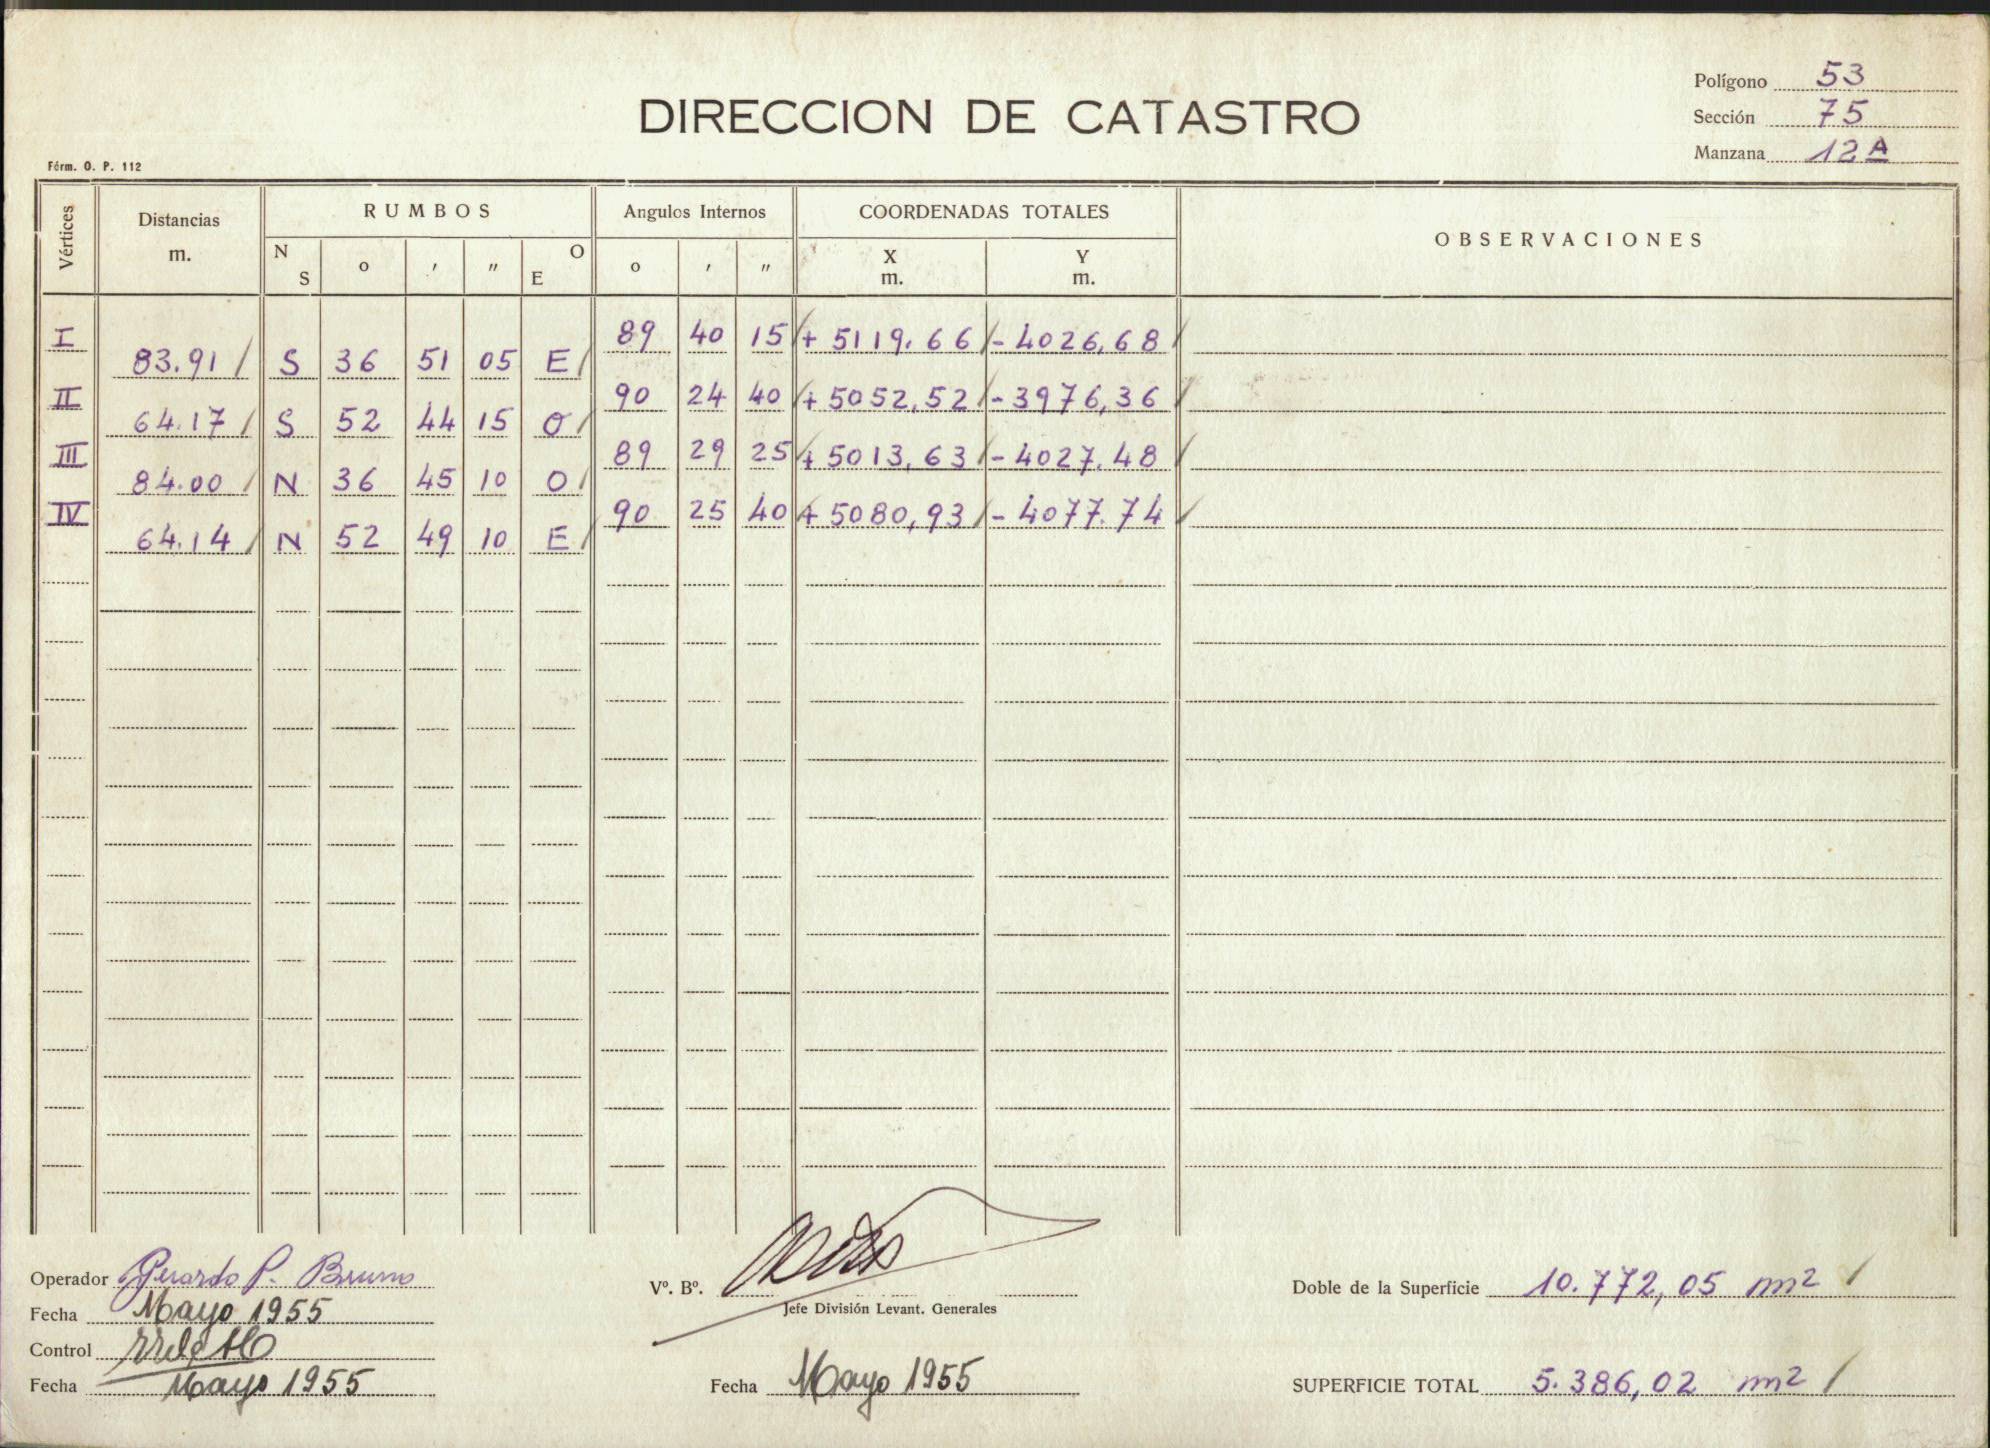 Polígono 53
DIRECCION DE CATASTRO
Sección 75
Manzana 12 A
Fórm. O. P. 112
Vértices
Distancias m.
RUMBOS
N S o ′ ″ O E
Angulos Internos
o ′ ″
COORDENADAS TOTALES
X m. Y m.
OBSERVACIONES
I 89 40 15 + 5119.66 - 4026,68
83.91 S 36 51 05 E
II 90 24 40 + 5052,52 - 3976,36
64.17 S 52 44 15 O
III 89 29 25 + 5013,63 - 4027.48
84.00 N 36 45 10 O
IV 90 25 40 + 5080,93 - 4077.74
64.14 N 52 49 10 E
Operador Gerardo P. Bruno
Vº. Bº.
Doble de la Superficie 10.772,05 m2
Jefe División Levant. Generales
Fecha Mayo 1955
Control
Fecha Mayo 1955
Fecha Mayo 1955
SUPERFICIE TOTAL 5.386,02 m2